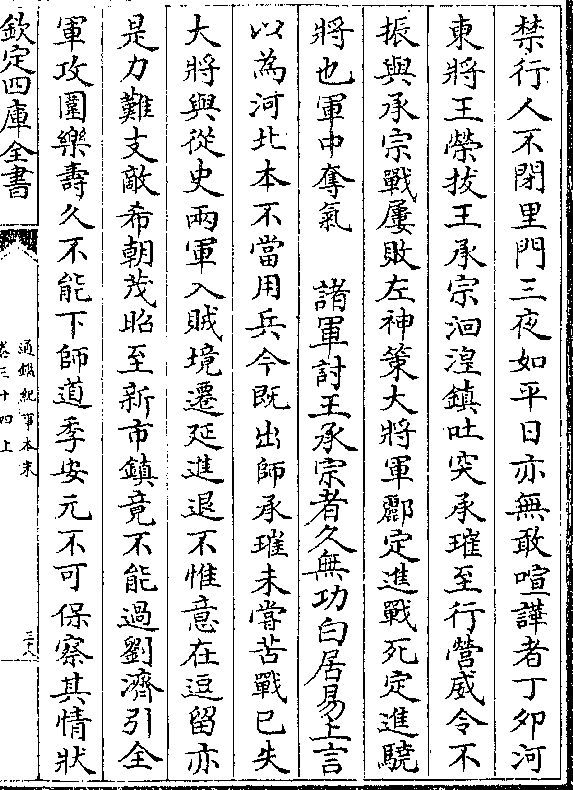 禁行人不閉里門三夜如平日亦無敢喧譁者丁夘河
東將王榮拔王承宗洄湟鎮吐突承璀至行營威令不
振與承宗戰屢敗左神策大將軍酈定進戰死定進驍
將也軍中奪氣　諸軍討王承宗者久無功白居易上言
以為河北本不當用兵今既出師承璀未嘗苦戰已失
大將與從史兩軍入賊境遷延進退不惟意在逗留亦
是力難支敵希朝茂昭至新市鎮竟不能過劉濟引全
軍攻圍樂壽久不能下師道季安元不可保察其情狀
欽定四庫全書
通鑑紀事本末
卷三十四上
三八